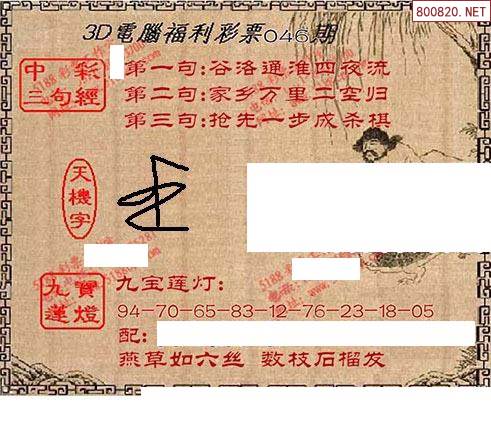 800820.NET
3D電腦福利彩票046期
中彩
三句經
第一句:谷洛通淮四夜流
第二句:家乡万里二空归
第三句:抢先一步成杀棋
天機字
九寶
蓮燈
九宝莲灯:
94-70-65-83-12-76-23-18-05
配:
燕草如六丝 数枝石榴发